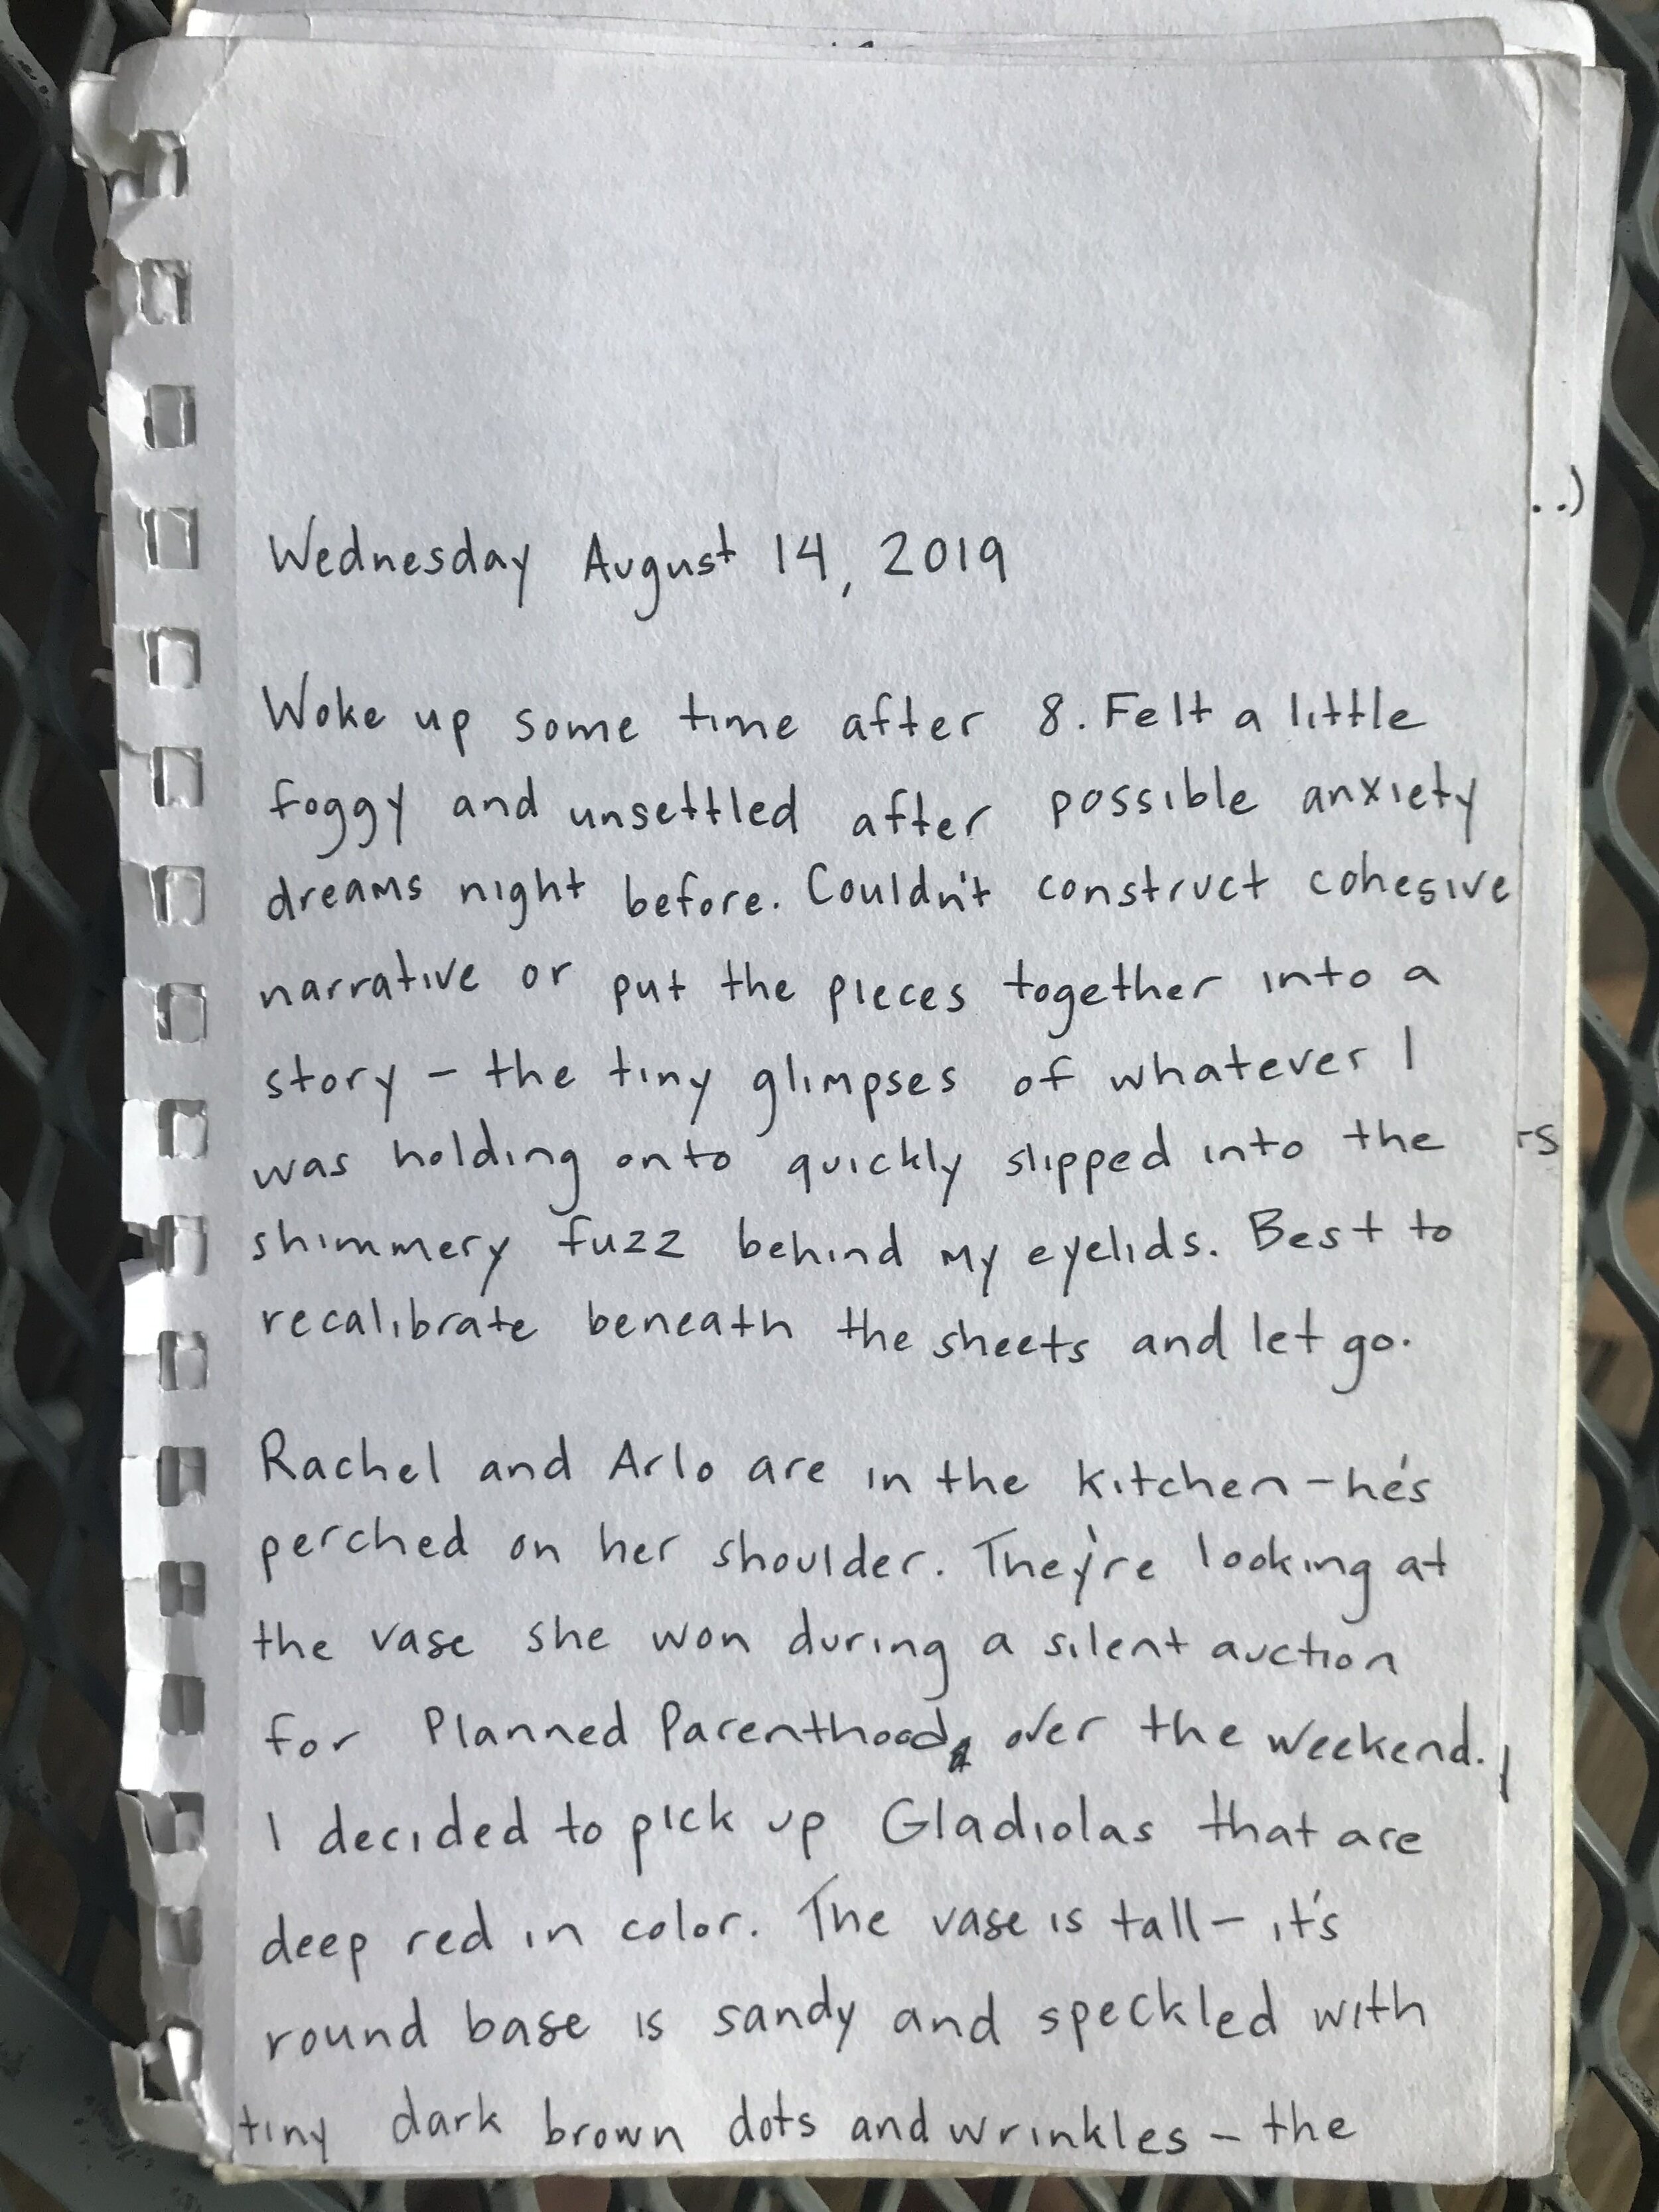 Wednesday August 14, 2019
Woke up some time after 8. Felt a little
foggy and unsettled after possible anxiety
dreams night before. Couldn't construct cohesive
narrative or put the pieces together into a
story – the tiny glimpses of whatever I
was holding onto quickly slipped into the
shimmery fuzz behind my eyelids. Best to
recalibrate beneath the sheets and let go.
Rachel and Arlo are in the kitchen – he's
perched on her shoulder. They're looking at
the vase she won during a silent auction
for Planned Parenthood over the weekend.
I decided to pick up Gladiolas that are
deep red in color. The vase is tall – it's
round base is sandy and speckled with
tiny dark brown dots and wrinkles – the